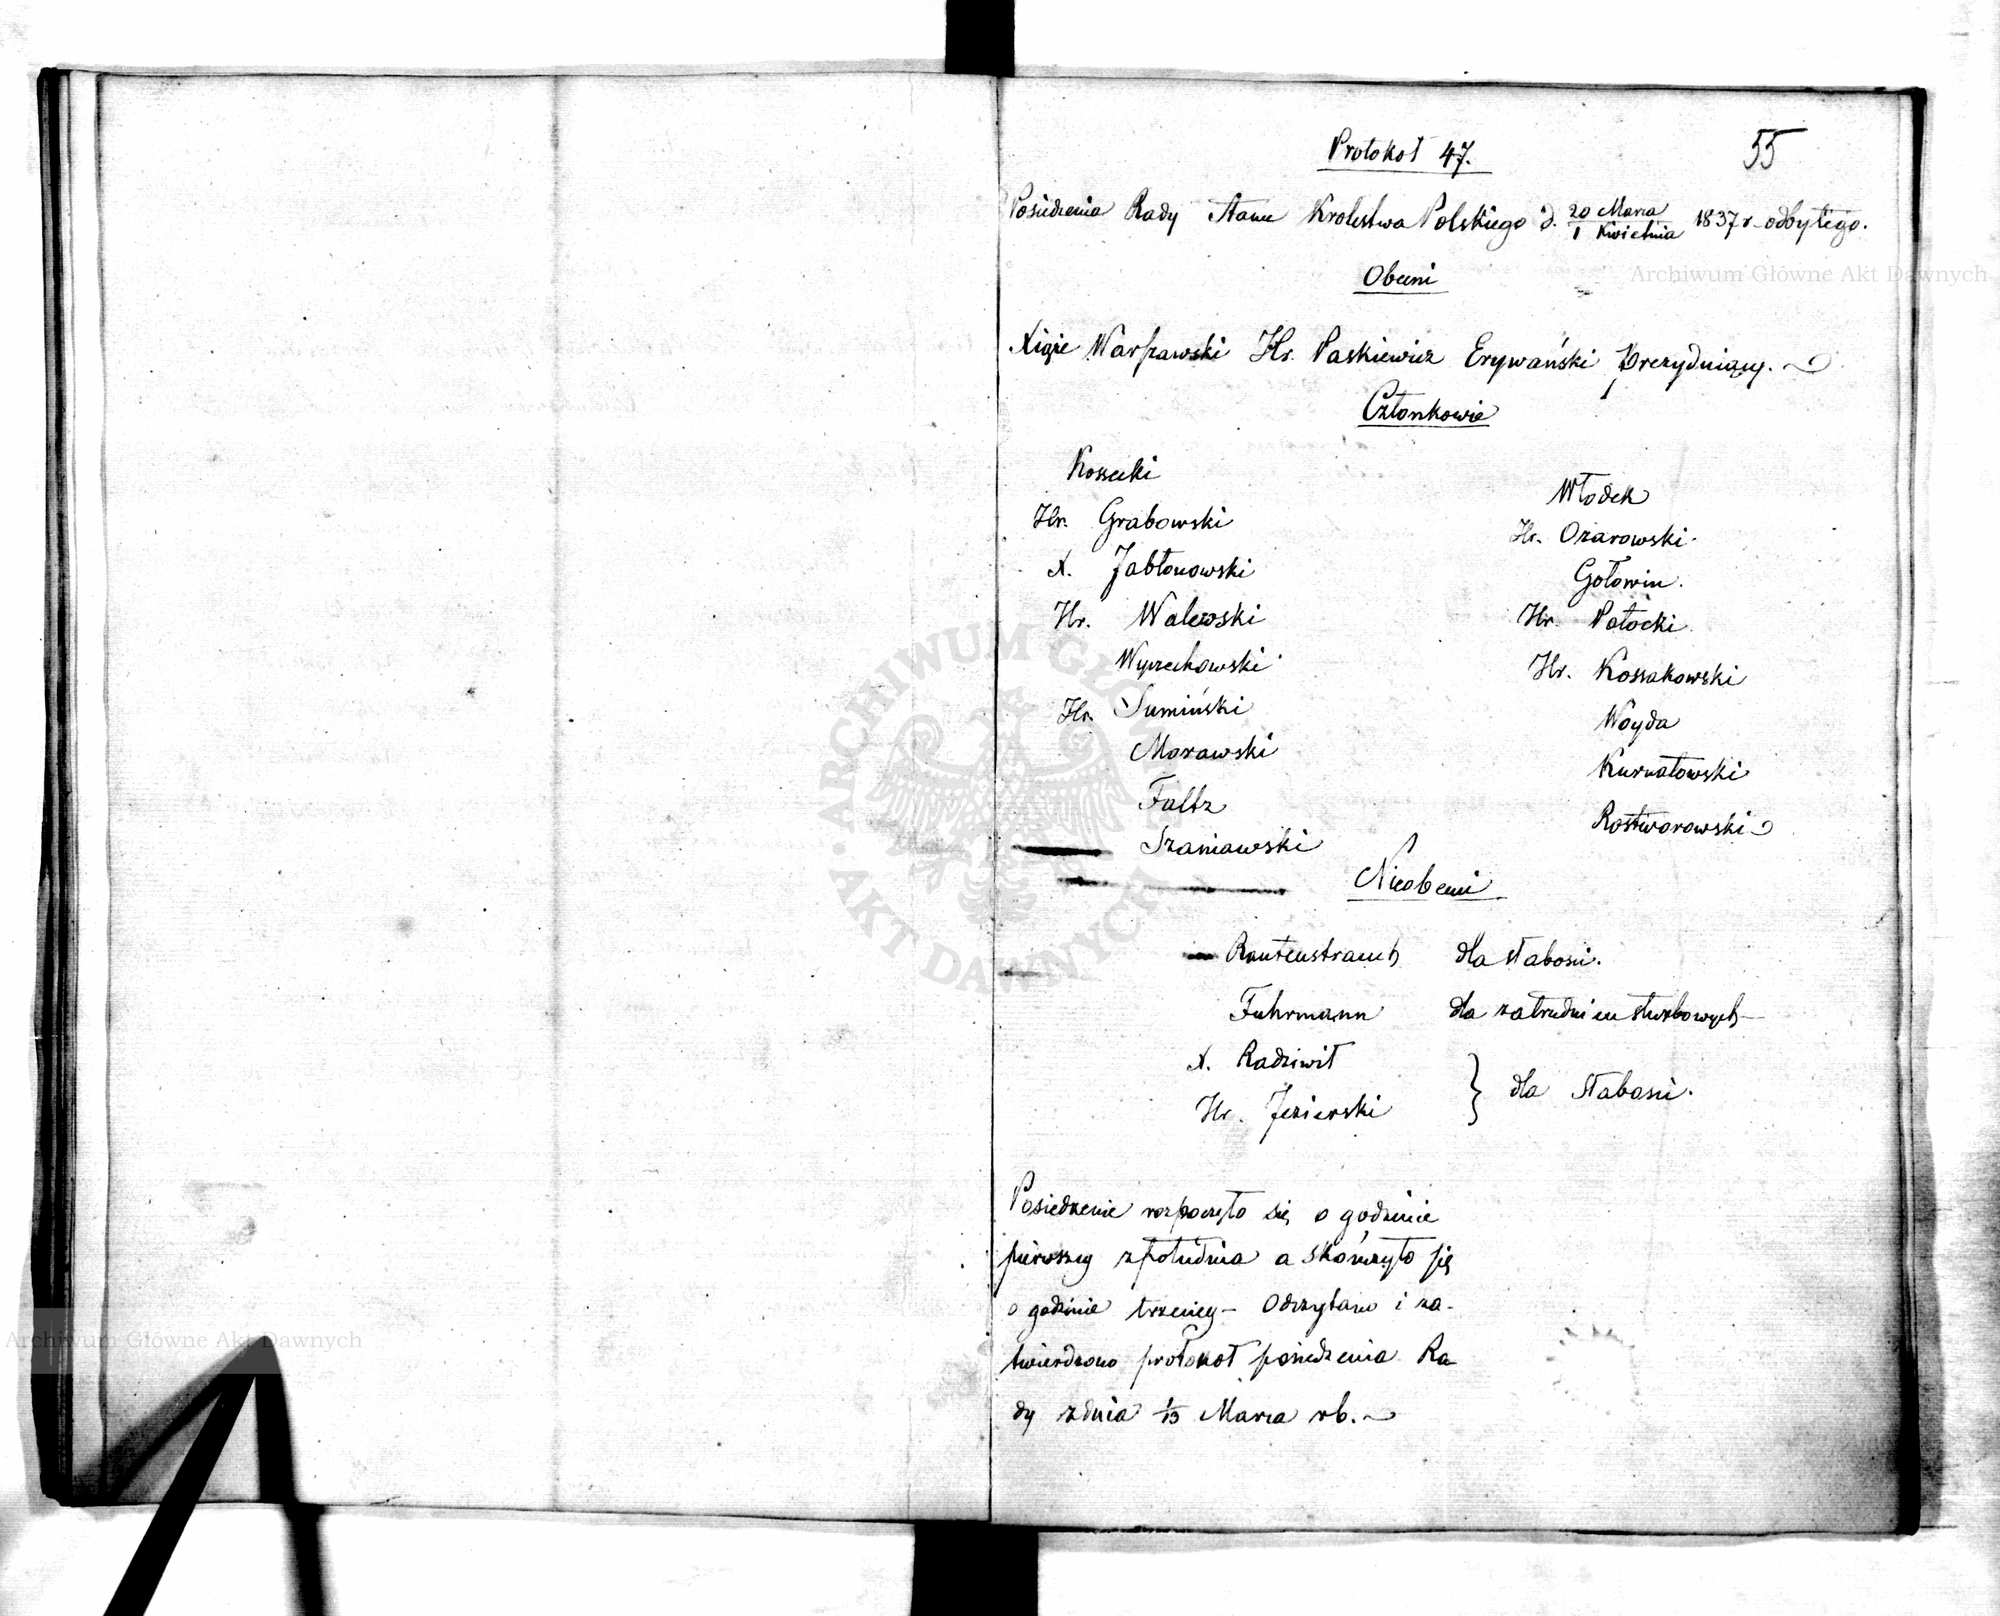 55
Protokoł 47.
Posiedzenia Rady Stanu Królestwa Polskiego d. 20 Marca / 1 Kwietnia 1837 r. odbytego.
Obecni
Xiąże Warszawski Hr. Paskiewicz Erywański Prezydujący.
Członkowie
Kossecki
Hr. Grabowski
X. Jabłonowski
Hr. Walewski
Wyczechowski
Hr. Sumiński
Morawski
Faltz
Szaniawski
Włodek
Hr. Ożarowski.
Gołowin.
Hr. Potocki
Hr. Kossakowski
Woyda
Kurnatowski
Rostworowski
Nieobecni
Rautenstrauch dla słabości.
Fuhrmann dla zatrudnień służbowych
X. Radziwił
Hr. Jezierski } dla słabości.
Posiedzenie rozpoczęto się o godzinie
pierwszey z południa a skończyło się
o godzinie trzeciey – Odczytano i za-
twierdzono protokoł posiedzenia Ra-
dy z dnia 1/13 Marca rb.
Archiwum Główne Akt Dawnych
Archiwum Główne Akt Dawnych
ARCHIWUM GŁÓWNE AKT DAWNYCH